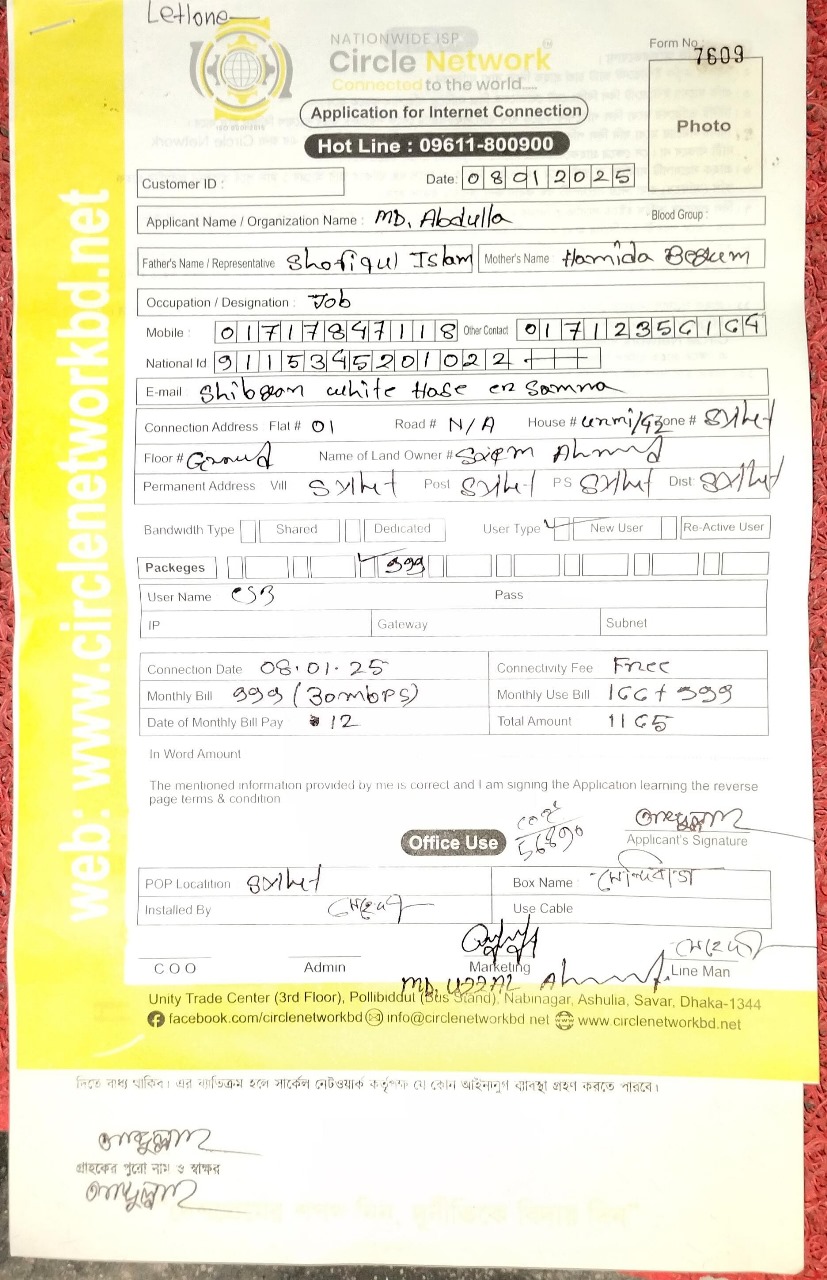 Letlone
NATIONWIDE ISP
Circle Network
Connected to the world.....
Form No. 7609
Application for Internet Connection
Photo
Hot Line : 09611-800900
Customer ID :
Date: 08012025
Applicant Name / Organization Name : MD. Abdulla
Blood Group :
Father's Name / Representative Shofiqul Islam Mother's Name Hamida Begum
Occupation / Designation : Job
Mobile : 01717847118 Other Contact 01712356164
National Id 9115345201022
E-mail Shibgon white Hase en Samna
Connection Address Flat # 01 Road # N/A House # Zone # Sylhet
Floor # Ground Name of Land Owner # Ahmed
Permanent Address Vill Sylhet Post Sylhet PS Sylhet Dist: Sylhet
Bandwidth Type Shared Dedicated User Type New User Re-Active User
Packeges 999
User Name CSB Pass
IP Gateway Subnet
Connection Date 08.01.25 Connectivity Fee Free
Monthly Bill 999 (30mbps) Monthly Use Bill 166+999
Date of Monthly Bill Pay 12 Total Amount 1165
In Word Amount
The mentioned information provided by me is correct and I am signing the Application learning the reverse
page terms & condition
Office Use 56890
Applicant's Signature
POP Locatition Sylhet Box Name
Installed By মেহেদী Use Cable
মেহেদী
COO Admin Marketing Line Man
MD. UZZAL Ahmed
Unity Trade Center (3rd Floor), Pollibiddut (Bus Stand), Nabinagar, Ashulia, Savar, Dhaka-1344
facebook.com/circlenetworkbd info@circlenetworkbd.net www.circlenetworkbd.net
web: www.circlenetworkbd.net
দিতে বাধ্য থাকিব। এর ব্যতিক্রম হলে সার্কেল নেটওয়ার্ক কর্তৃপক্ষ যে কোন আইনানুগ ব্যবস্থা গ্রহণ করতে পারবে।
আব্দুল্লাহ
গ্রাহকের পুরো নাম ও স্বাক্ষর
আব্দুল্লাহ